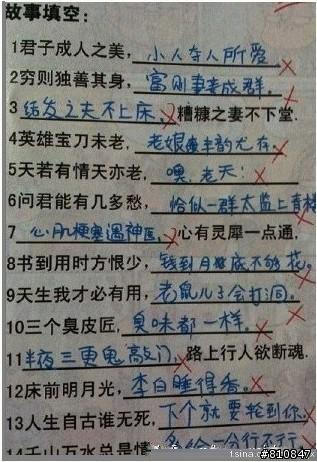 故事填空：
1君子成人之美，小人夺人所爱×
2穷则独善其身，富则妻妾成群。×
3结发之夫不上床，×糟糠之妻不下堂.
4英雄宝刀未老，老娘丰韵尤存。×
5天若有情天亦老，噢，老天！×
6问君能有几多愁，恰似一群太监上青楼
7心肌梗塞遇神医，×心有灵犀一点通，
8书到用时方恨少，钱到月底不够花。×
9天生我才必有用，老鼠儿子会打洞。×
10三个臭皮匠，臭味都一样。×
11半夜三更鬼敲门，×路上行人欲断魂.
12床前明月光，李白睡得香。×
13人生自古谁无死，下个就要轮到你×
14千山万水总是情，多给一分行不行.
#810847